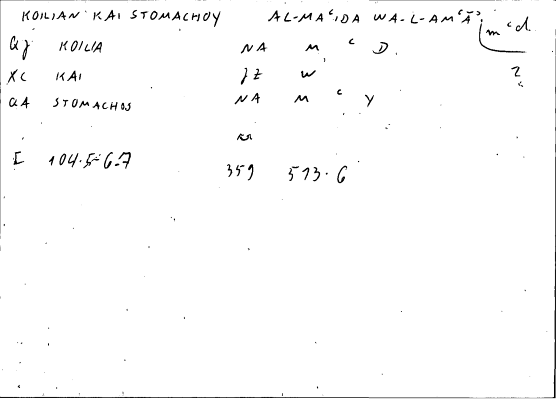 KOILIAN KAI STOMACHOY AL-MAʿIDA WA-L-AMʿĀʾ mʿd
QJ KOILIA NA M ʿ D
XC KAI JZ W 2
QA STOMACHOS NA M ʿ Y
E 104.5-6.7 359 513.6